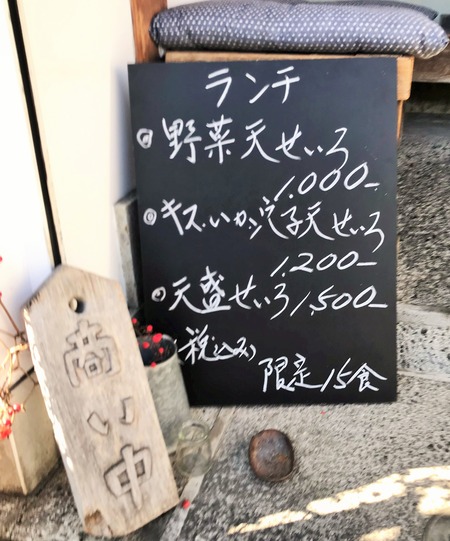 ランチ
◎野菜天せいろ
1,000-
◎キス、いか、穴子天せいろ
1,200-
◎天盛せいろ1,500-
税込み
限定15食
商い中